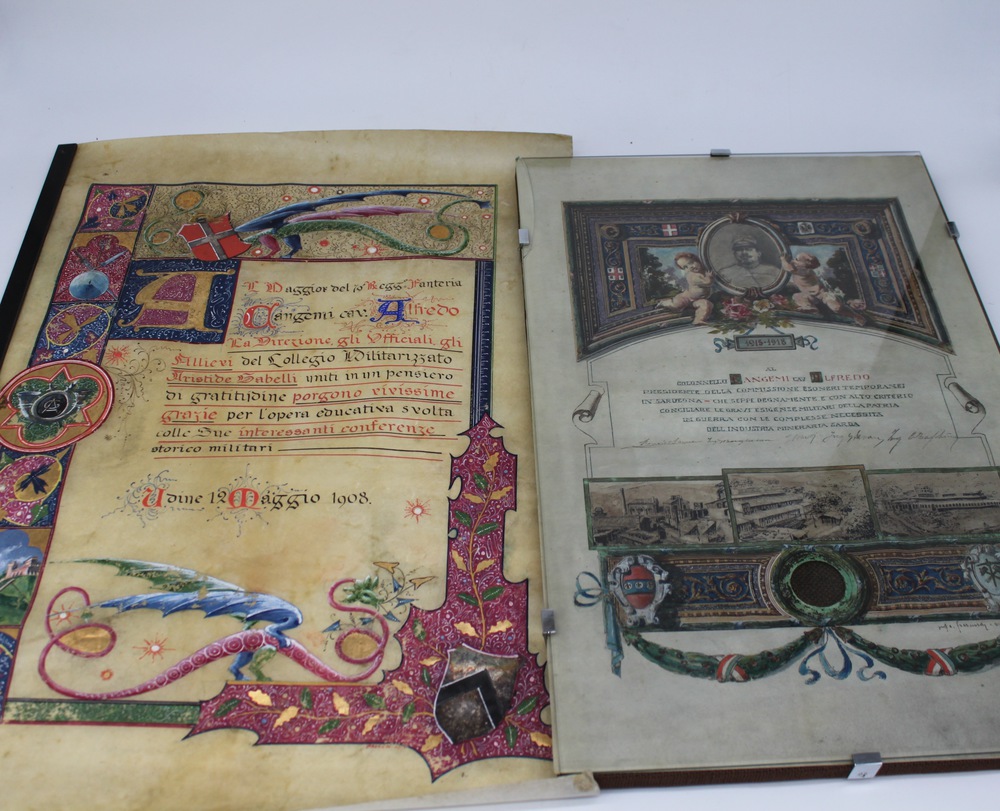 Al Maggior del 70º Regg. Fanteria
Cangemi cav. Alfredo
La Direzione, gli Ufficiali, gli
Allievi del Collegio Militarizzato
Aristide Gabelli uniti in un pensiero
di gratitudine porgono vivissime
grazie per l'opera educativa svolta
colle Due interessanti conferenze
storico militari
Udine 12 Maggio 1908.
1915-1918
AL
COLONNELLO CANGEMI CAV ALFREDO
PRESIDENTE DELLA COMMISSIONE ESONERI TEMPORANEI
IN SARDEGNA - CHE SEPPE DEGNAMENTE E CON ALTO CRITERIO
CONCILIARE LE GRAVI ESIGENZE MILITARI DELLA PATRIA
IN GUERRA CON LE COMPLESSE NECESSITÀ
DELL'INDUSTRIA MINERARIA SARDA